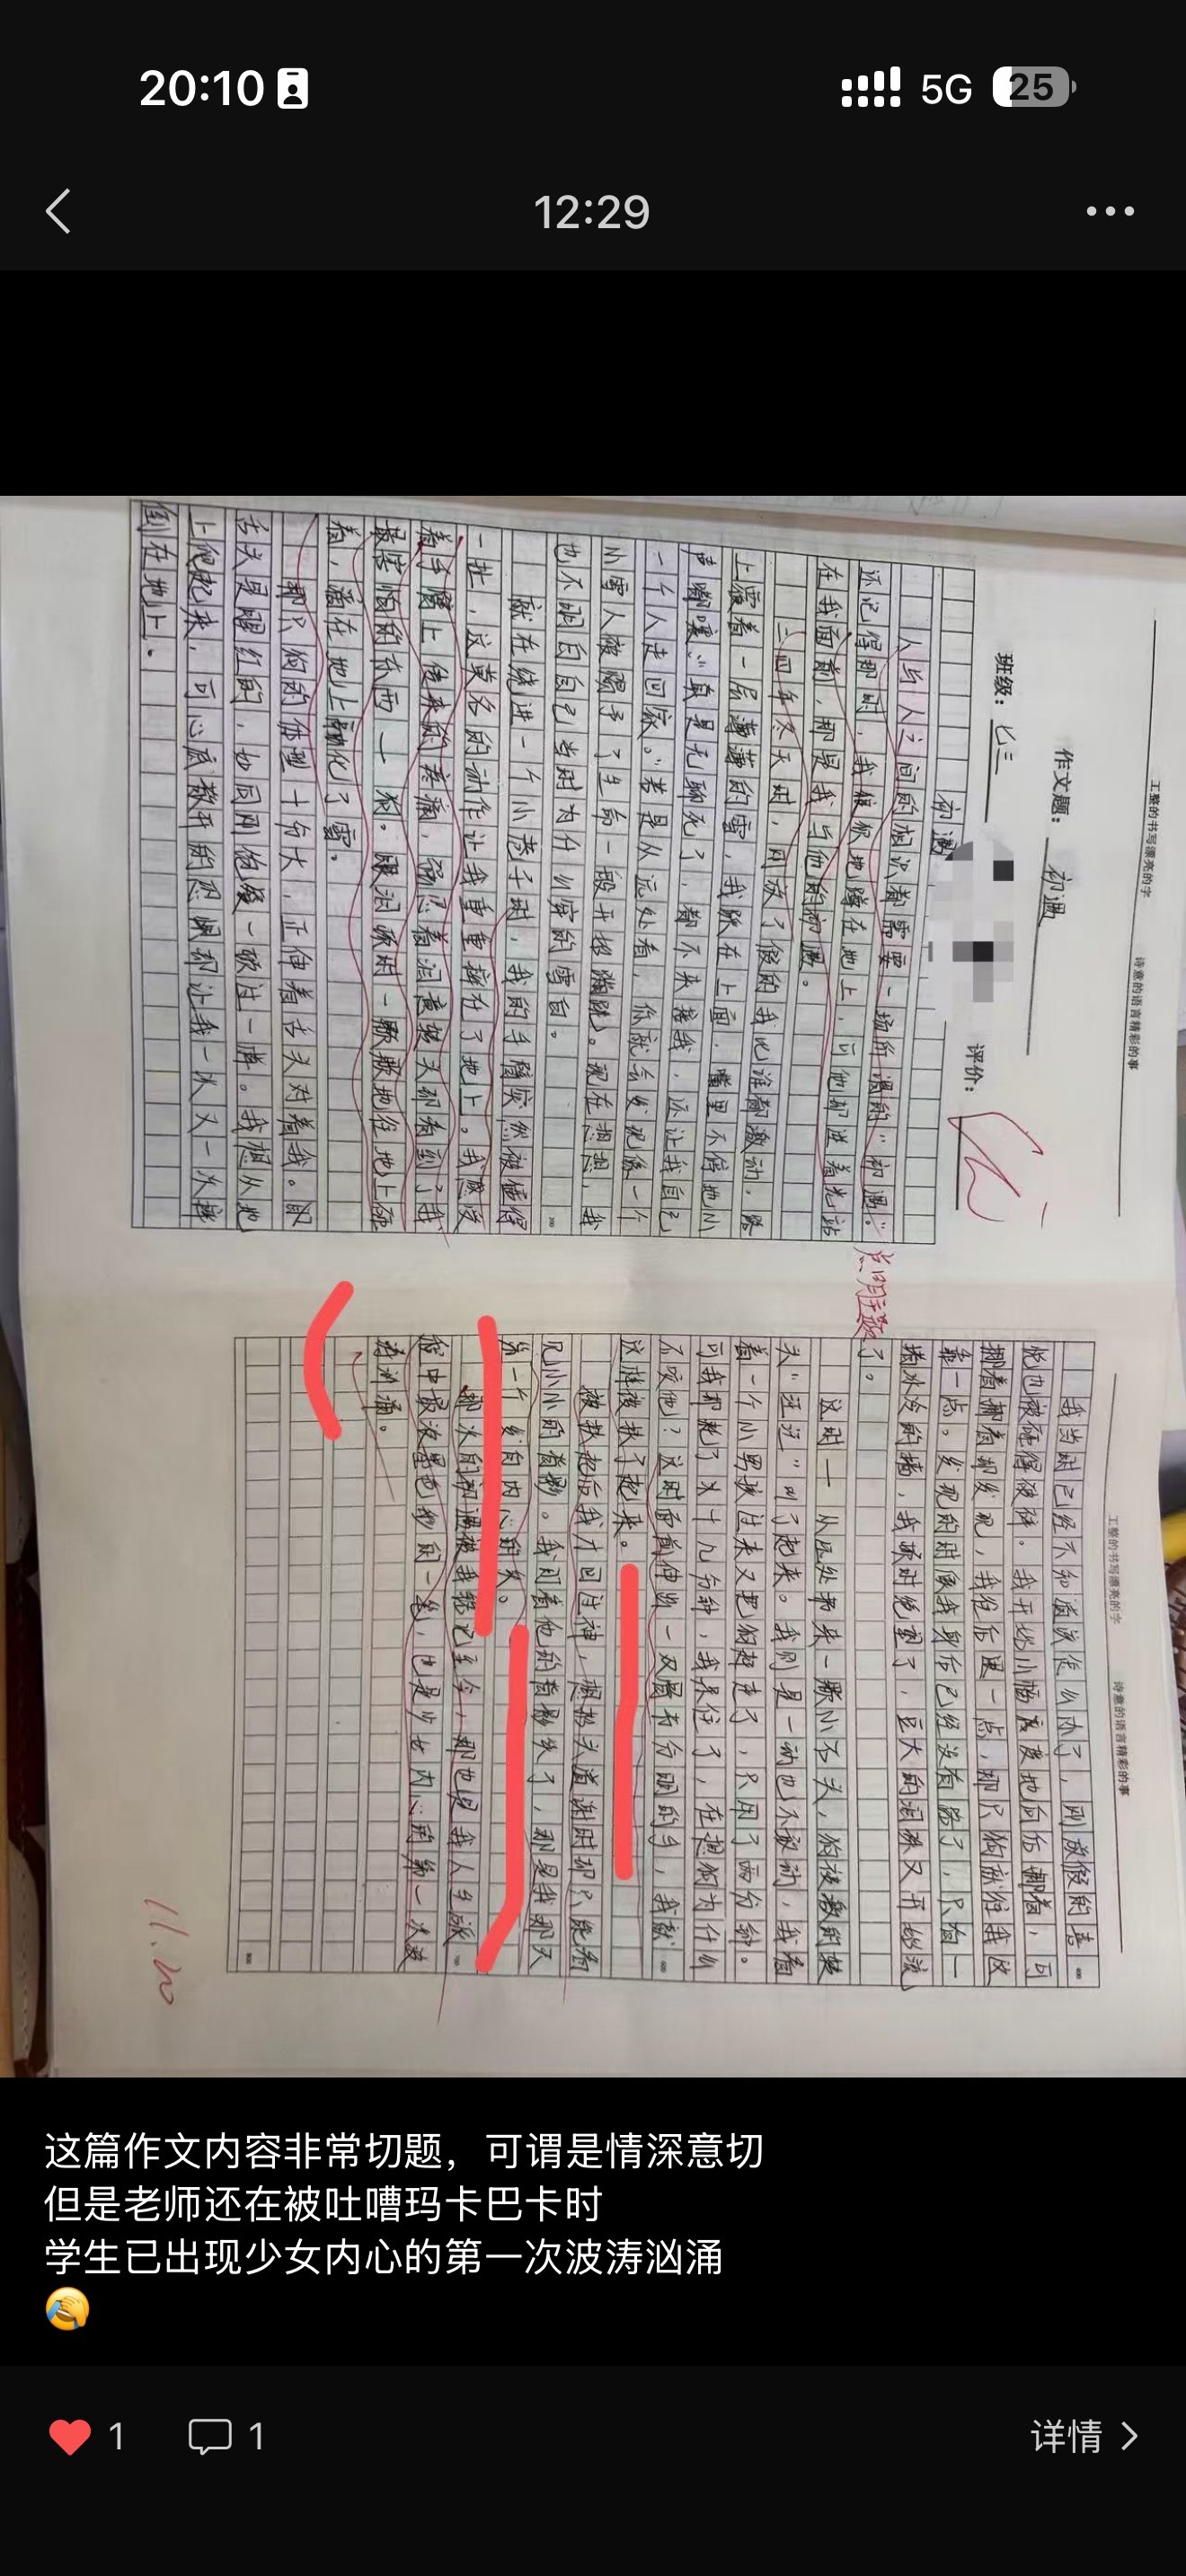 20:10
5G
25
12:29
工整的书写漂亮的字 诗意的语言精彩的事
作文题：初遇
班级：七三 评价：
初遇
人与人之间的相识都需要一场所谓的“初遇”。
还记得那时，我狼狈地蹲在地上，可他却逆着光站
在我面前，那是我与他的初遇。
三四年冬天时，刚放了假的我比谁都激动，路
上覆着一层薄薄的雪，我跃在上面，嘴里不停地小
声嘟囔：“真是无聊死了，都不来接我，还让我自己
一个人走回家。”若是从远处看，你就会发现像一个
小雪人被赐予了生命一般开始蹦跳。现在想想，我
也不明白自己当时为什么穿的雪白。
就在绕进一个小巷子时，我的手臂突然被
一扯，这莫名的动作让我重重摔在了地上。我感受
着手腕上传来的疼痛，强忍着泪意转头却看到了我
最害怕的东西——狗。眼泪顿时一颗颗地往地上砸
着，滴在地上融化了雪。
那只狗的体型十分大，正伸着舌头对着我。
舌头是腥红的，如同刚饱餐一顿过一样。我想从地
上爬起来，可心底散开的恐惧却让我一次又一次摔
倒在地上。
点明主题
工整的书写漂亮的字 诗意的语言精彩的事
我当时已经不知道该怎么办了，刚放假的喜
悦也被砸得破碎。我开始小幅度度地向后挪着，可
挪着挪着却发现，我往后退一点，那只狗就往我这
靠一点。发现的时候我身后已经没有路了，只有一
堵冰冷的墙，我顿时绝望了，豆大的泪珠又开始流
了。
这时——从远处扔来一颗小石头，狗被激的转
头“汪汪”叫了起来。我则是一动也不敢动，我看
着一个小男孩过来又把狗赶走了，只用了两分钟。
可我却耗了大十几分钟，我呆住了，在想狗为什么
不咬他？这时面前伸出一双骨节分明的手，我就
这样被扶了起来。
被扶起后我才回过神，想抬头道谢时却只能看
见小小的背影。我问着他的背影笑了，那是我那天
第一个发自内心的笑。
那次的初遇被我铭记至今，那也是我人生旅
程中最浓墨色彩的一笔，也是少女内心的第一次波
涛汹涌。
11.20
这篇作文内容非常切题，可谓是情深意切
但是老师还在被吐嘈玛卡巴卡时
学生已出现少女内心的第一次波涛汹涌
1
1
详情